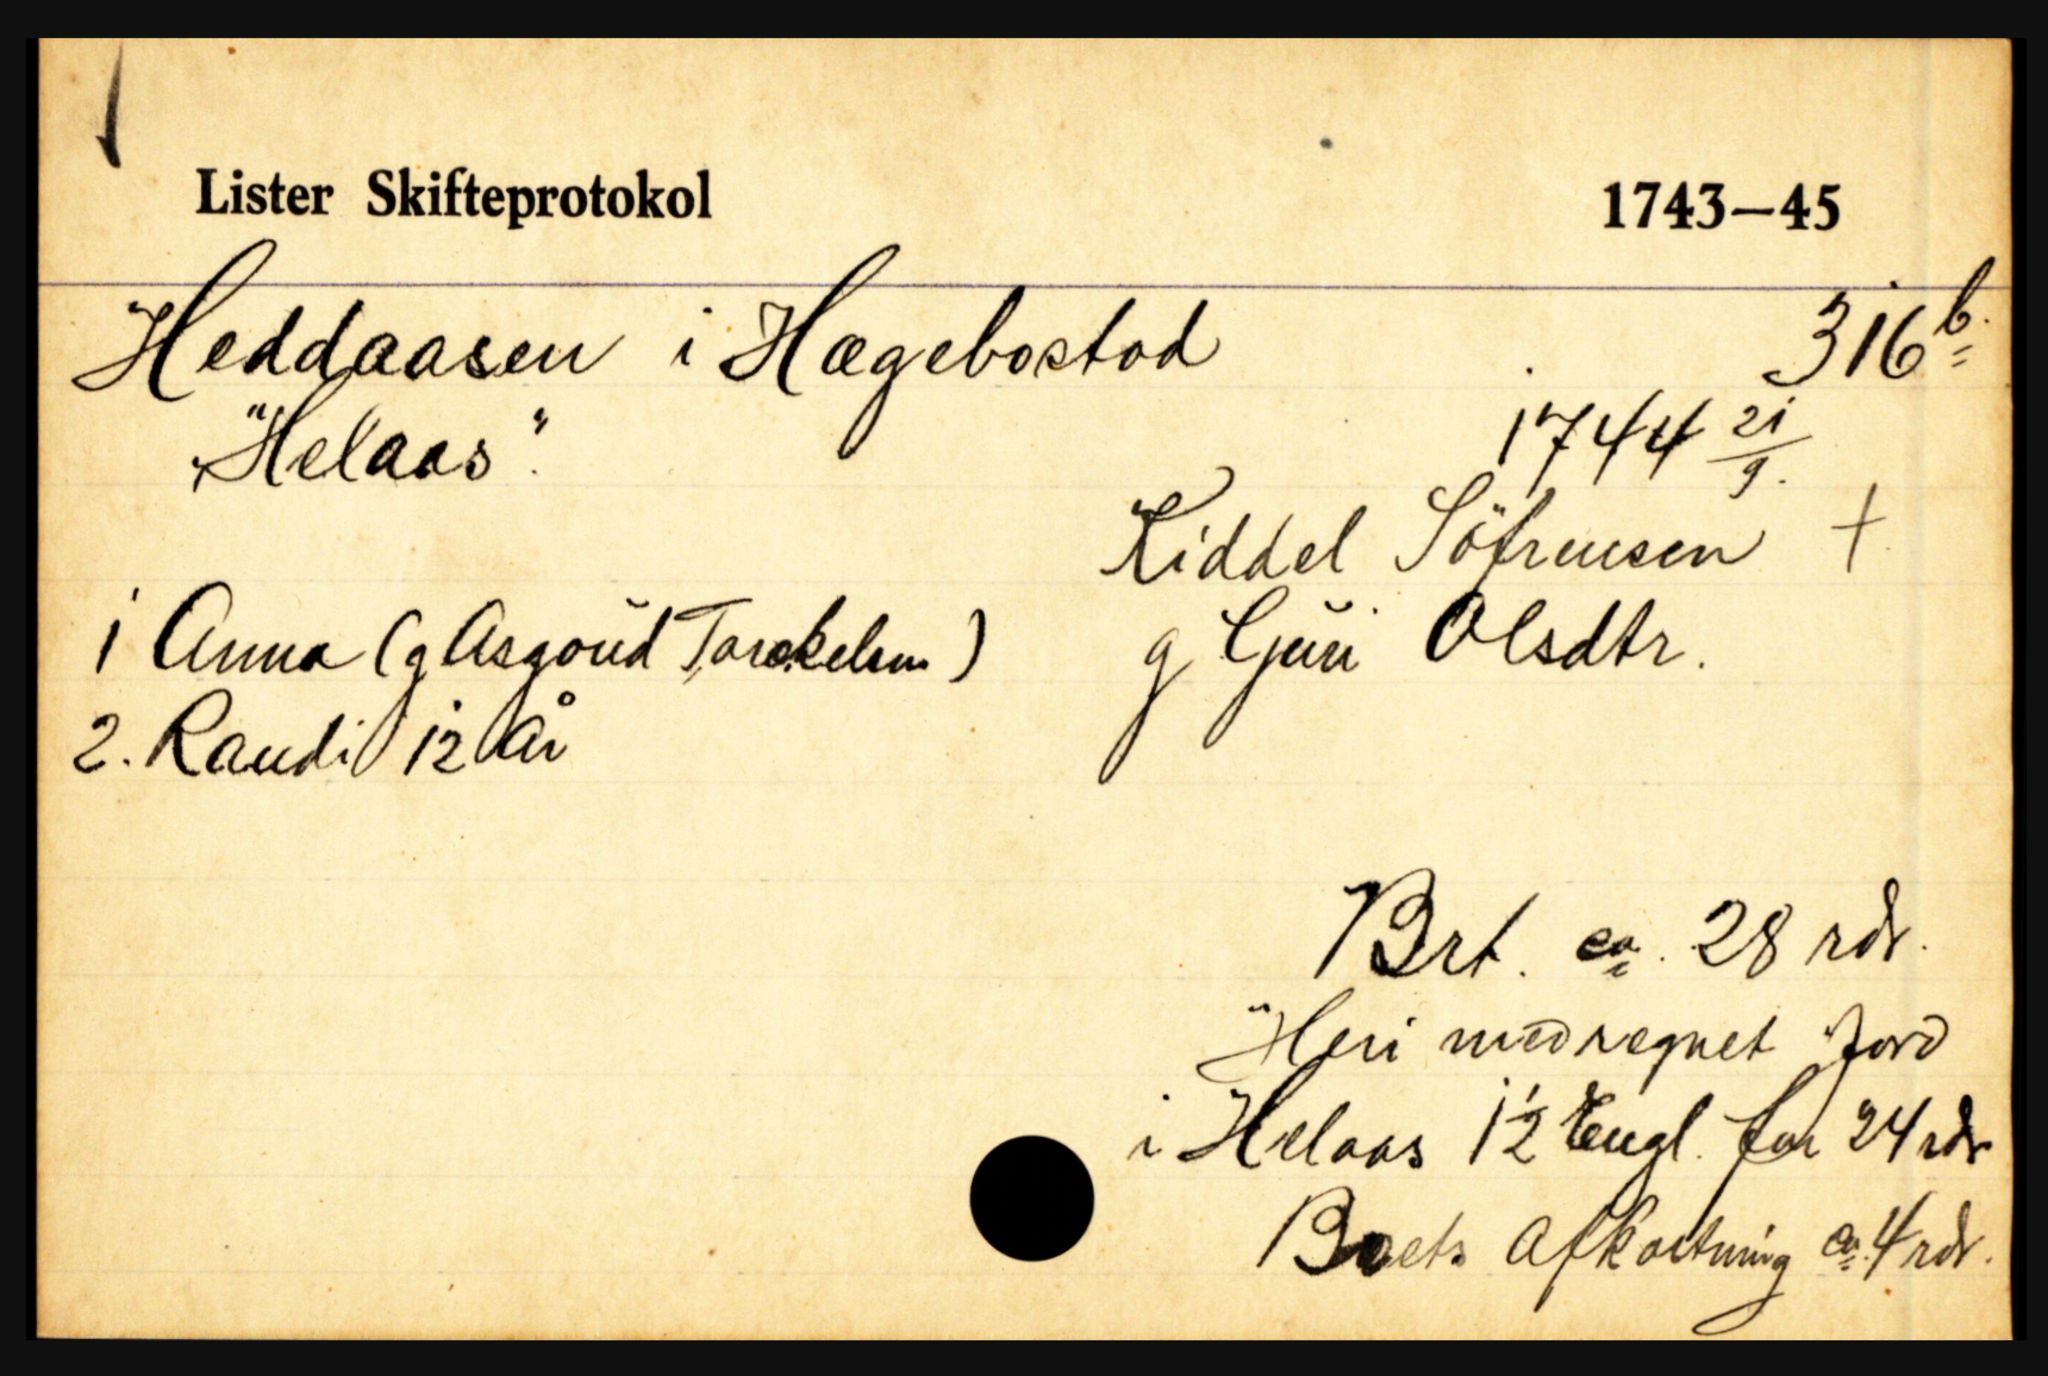 Lister Skifteprotokol 1743–45
Heddaasen i Hægebostad 316 b.
"Helaas". 1744 21/9.
Kiddel Söfrensen +
1 Anna (g Asgoŭd Torckelsen) g Gŭri Olsdtr.
2. Randi 12 År
Brt. ca. 28 rdr.
"Heri medregnet Jord
i Helaas 1 1/2 Engl. for 24 rdr
Boets Afkortning ca. 4 rdr.